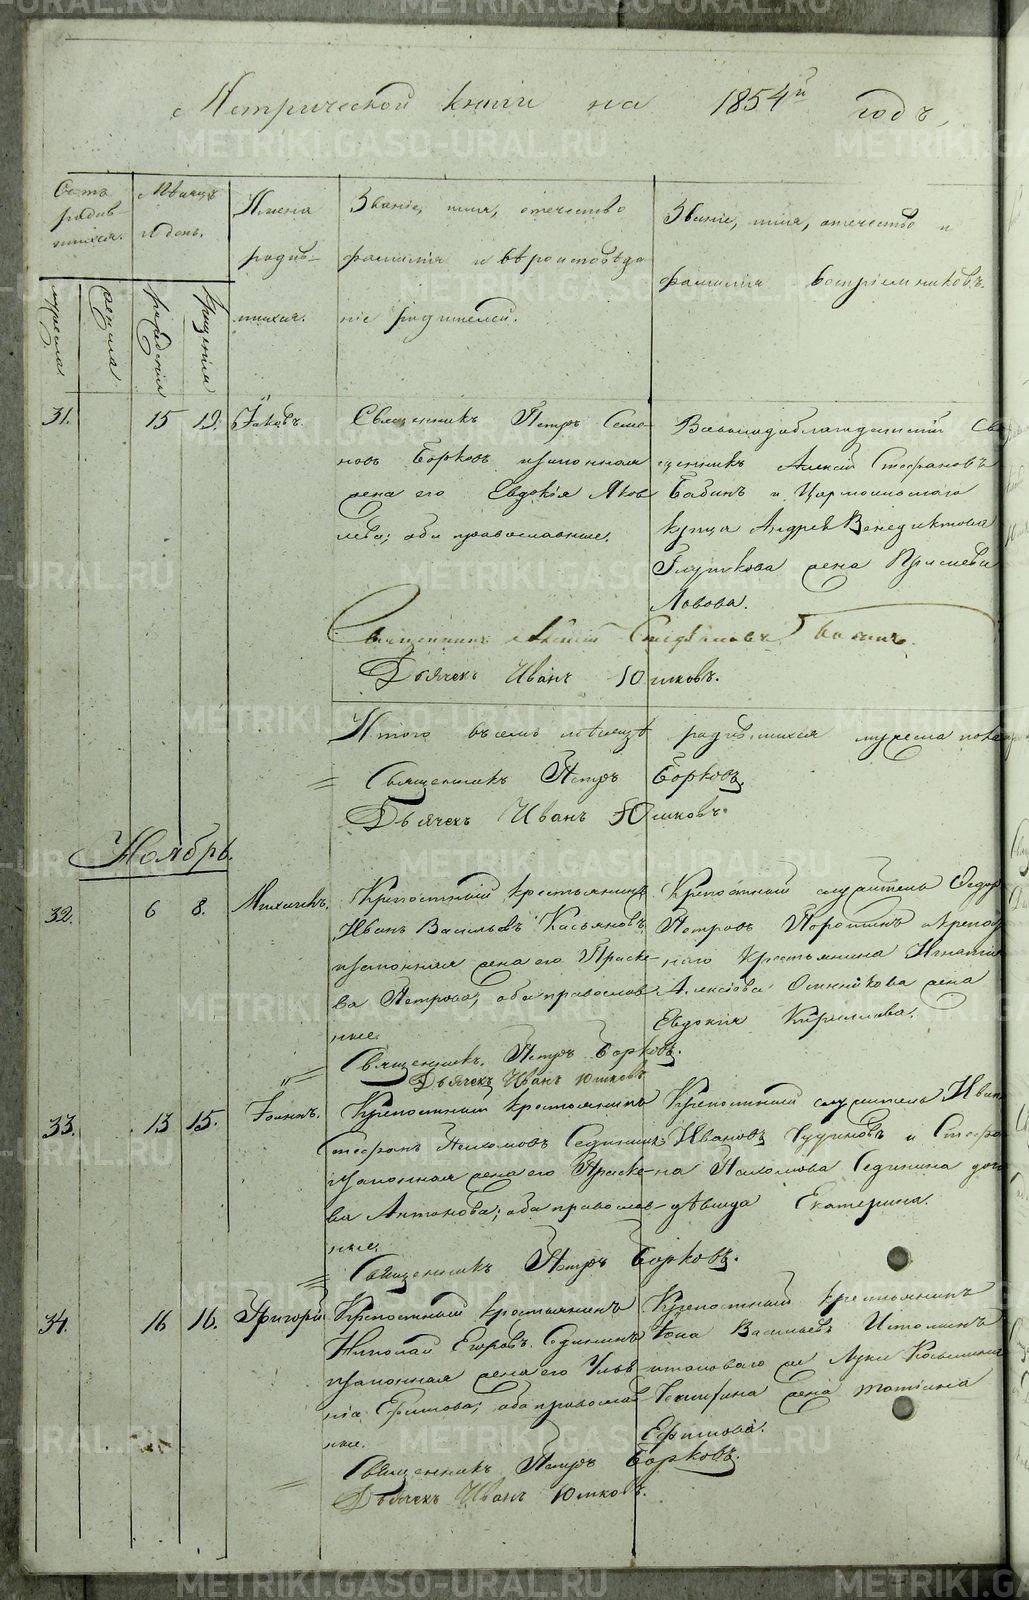 Метрической книги на 1854й годъ,
Счетъ родив- шихся.
Мѣсяцъ и день.
мужеска
женска
рожденія
крещенія
Имена родив- шихся.
Званіе, имя, отечество
фамилія и вѣроисповѣда
ніе родителей.
Званіе, имя, отечество и
фамилія воспріемниковъ.
31. 15 19. Іаковъ.
Священникъ Петръ Семе-
новъ Борковъ и законная
жена его Евдокія Яков
лева; оба православные.
Алексій Стефановъ
Бабинъ и
купца Андрея Венедиктова
жена
Львова.
Священникъ Алексій Стефановъ Бабинъ.
Дьячекъ Иванъ Юшковъ.
Итого въ семъ мѣсяцѣ родившихся мужеска пола
Священникъ Петръ Борковъ.
Дьячекъ Иванъ Юшковъ.
Ноябрь.
32. 6 8. Михаилъ.
Крепостный крестьянинъ
Иванъ Васильевъ Касьяновъ
и законная жена его Праске-
ва Петрова, оба православ
ные.
Крепостный служитель Федоръ
Петровъ Поротинъ и крепос
наго крестьянина Игнатія
Алексіева жена
Евдокія Кирилова.
Священникъ Петръ Борковъ.
Дьячекъ Иванъ Юшковъ.
33. 13 15. Іоаннъ.
Крепостный крестьянинъ
Стефанъ Пахомовъ Сединкинъ
и законная жена его Праске-
ва Антонова; оба православ-
ные.
Крепостный служитель Иванъ
Ивановъ и Стефа
на Пахомова Сединкина дочь
дѣвица Екатерина.
Священникъ Петръ Борковъ.
34. 16 16. Григорій
Крепостный крестьянинъ
Николай Егоровъ
и законная жена его Улья
нія Ефимова; оба православ
ные.
Крепостный крестьянинъ
Іона Васильевъ Истоминъ
и таковаго же Луки Косьмина
жена Татіана
Ефимова.
Священникъ Петръ Борковъ.
Дьячекъ Иванъ Юшковъ.
METRIKI.GASO-URAL.RU